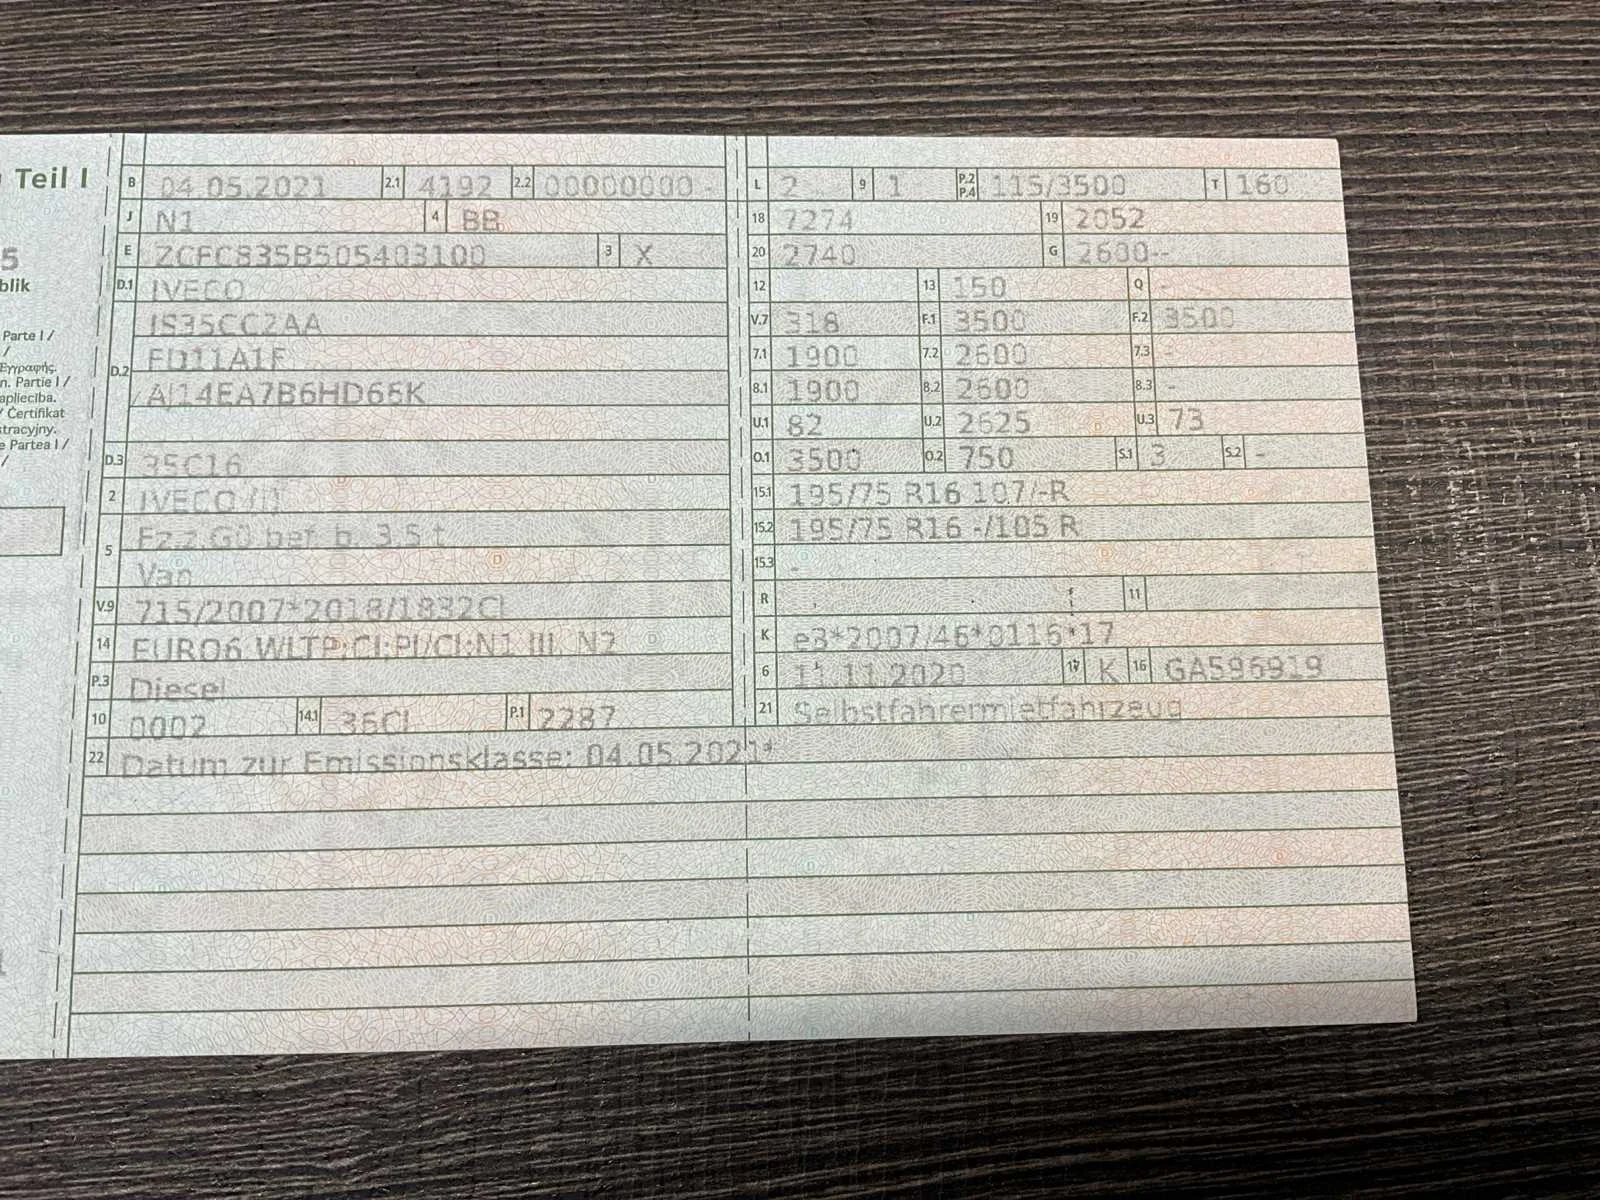 Teil I
5
blik
Parte I /
/
Εγγραφής.
n. Partie I /
apliecība.
/ Certifikat
tracyjny.
e Partea I /
/
B 04.05.2021 2.1 4192 2.2 00000000 -
J N1 4 BB
E ZCFC835B505403100 3 X
D.1 IVECO
D.2 IS35CC2AA
FD11A1F
AJ14EA7B6HD66K
D.3 35C16
2 IVECO (I)
5 Fz.z.Gü bef. b. 3,5 t
Van
V.9 715/2007*2018/1832CI
14 EURO6 WLTP;CI;PI/CI:N1 III, N2
P.3 Diesel
10 0002 14.1 36CI P.1 2287
22 Datum zur Emissionsklasse: 04.05.2021*
L 2 9 1 P.2 P.4 115/3500 T 160
18 7274 19 2052
20 2740 G 2600--
12 - 13 150 Q -
V.7 318 F.1 3500 F.2 3500
7.1 1900 7.2 2600 7.3 -
8.1 1900 8.2 2600 8.3 -
U.1 82 U.2 2625 U.3 73
O.1 3500 O.2 750 S.1 3 S.2 -
15.1 195/75 R16 107/-R
15.2 195/75 R16 -/105 R
15.3 -
R 11
K e3*2007/46*0116*17
6 11.11.2020 17 K 16 GA596919
21 Selbstfahrermietfahrzeug